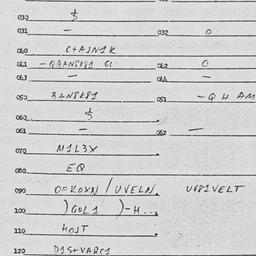 030 $
031 – 032 0
040 C+AJN1K
041 –QBANSK81 CL 042 0
043 – 044 –
050 BANSK81 051 –Q H AM
060 $
061 – 062 –
070 M1L3X
080 EQ
090 OFKOXN / UVELN. U681VELT
100 )GOL1 )–H...
110 HOST
120 D1S+VARC1